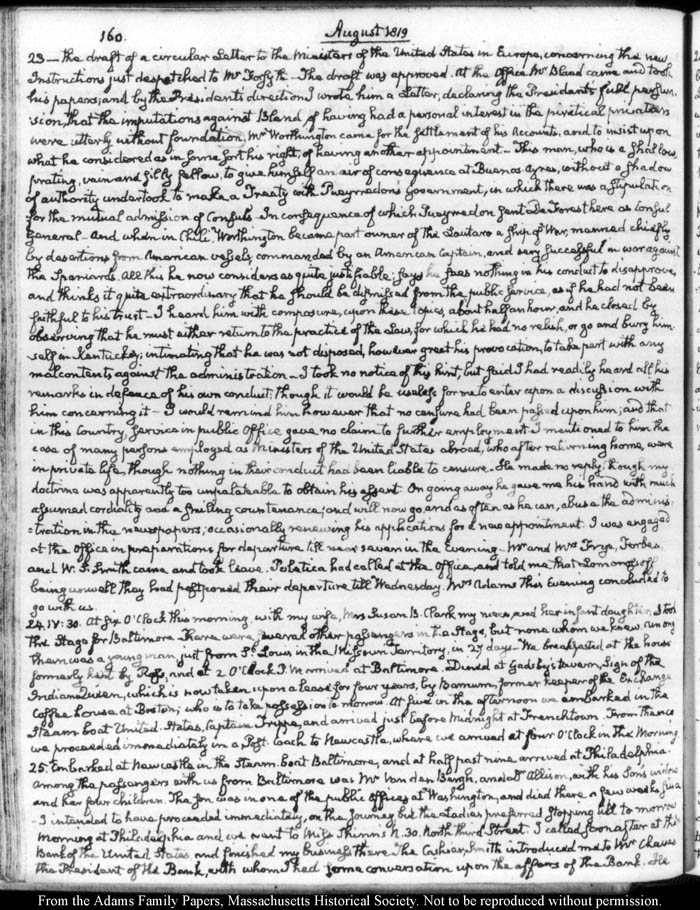 160. August 1819
23 — the draft of a circular Letter to the Ministers of the United States in Europe, concerning the new
Instructions just despatched to Mr Forsyth — The draft was approved. At the Office Mr Bland came and took
his papers; and by the President's direction I wrote him a Letter, declaring the President's full persua-
sion, that the imputations against Bland, of having had a personal interest in the piratical privateers
were utterly without foundation. Mr Worthington came for the settlement of his Accounts, and to insist upon
what he considered as in some sort his right, of having another appointment — This man, who is a shallow,
prating, vain and silly fellow, to give himself an air of consequence at Buenos Ayres, without a shadow
of authority undertook to make a Treaty with Pueyrredon's Government, in which there was a stipulation
for the mutual admission of Consuls — In consequence of which Pueyrredon sent De Forest here as Consul
General — And when in Chili, Worthington became part owner of the Lautaro a Ship of War, manned chiefly
by desertions from American vessels, commanded by an American Captain, and very successful in war against
the Spaniards. All this he now considers as quite justifiable: says he sees nothing in his conduct to disapprove,
and thinks it quite extraordinary that he should be dismissed from the public service, as if he had not been
faithful to his trust — I heard him with composure, upon these topics, about half an hour, and he closed by
observing that he must either return to the practice of the Law, for which he had no relish, or go and bury him-
self in Kentucky; intimating that he was not disposed, however great his provocation, to take part with any
malcontents against the administration — I took no notice of this hint, but said I had readily heard all his
remarks in defence of his own conduct; though it would be useless for me to enter upon a discussion with
him concerning it — I would remind him however that no censure had been passed upon him; and that
in this Country, service in public Office gave no claim to further employment. I mentioned to him the
case of many persons employed as Ministers of the United States abroad, who after returning home, were
in private life, though nothing in their conduct had been liable to censure. He made no reply; though my
doctrine was apparently too unpalateable to obtain his assent. On going away he gave me his hand with much
assumed cordiality and a smiling countenance; and will now go, and as often as he can, abuse the adminis-
tration in the newspapers; occasionally renewing his applications for a new appointment. I was engaged
at the office in preparations for departure till near seven in the Evening. Mr and Mrs Frye, Forbes,
and W. S. Smith came and took leave. Poletica had called at the Office, and told me that Lomonosoff
being unwell they had postponed their departure till Wednesday. Mrs Adams this Evening concluded to
go with us.
24. IV:30. At Six O'Clock this morning, with my wife, Mrs Susan B. Clark my niece, and her infant daughter, I took
the Stage for Baltimore. There were several other passengers in the Stage, but none whom we knew. Among
them was a young man just from St. Louis in the Missouri Territory, in 27 days. We breakfasted at the house
formerly kept by Ross, and at 2 O'Clock P.M. arrived at Baltimore. Dined at Gadsby's tavern, Sign of the
Indian Queen, which is now taken upon a lease for four years, by Barnum, former keeper of the Exchange
Coffee house at Boston; who is to take possession to morrow. At five in the afternoon we embarked in the
Steam boat United-States, Captain Trippe, and arrived just before Midnight at Frenchtown. From thence
we proceeded immediately in a Post-Coach to Newcastle, where we arrived at four O'Clock in the Morning.
25. Embarked at Newcastle in the Steam boat Baltimore, and at half past nine arrived at Philadelphia.
among the passengers with us from Baltimore was Mr Van den Bergh, and Dr Allison, with his Son's widow
and her four children. The son was in one of the public offices at Washington, and died there a few weeks since
— I intended to have proceeded immediately, on the Journey, but the Ladies preferred stopping till to morrow
morning at Philadelphia and we went to Miss Thinn's N. 30. North third Street. I called soon after at the
Bank of the United States, and finished my business there. The Cashier, Smith introduced me to Mr Cheves
the President of the Bank, with whom I had some conversation upon the affairs of the Bank. He
From the Adams Family Papers, Massachusetts Historical Society. Not to be reproduced without permission.